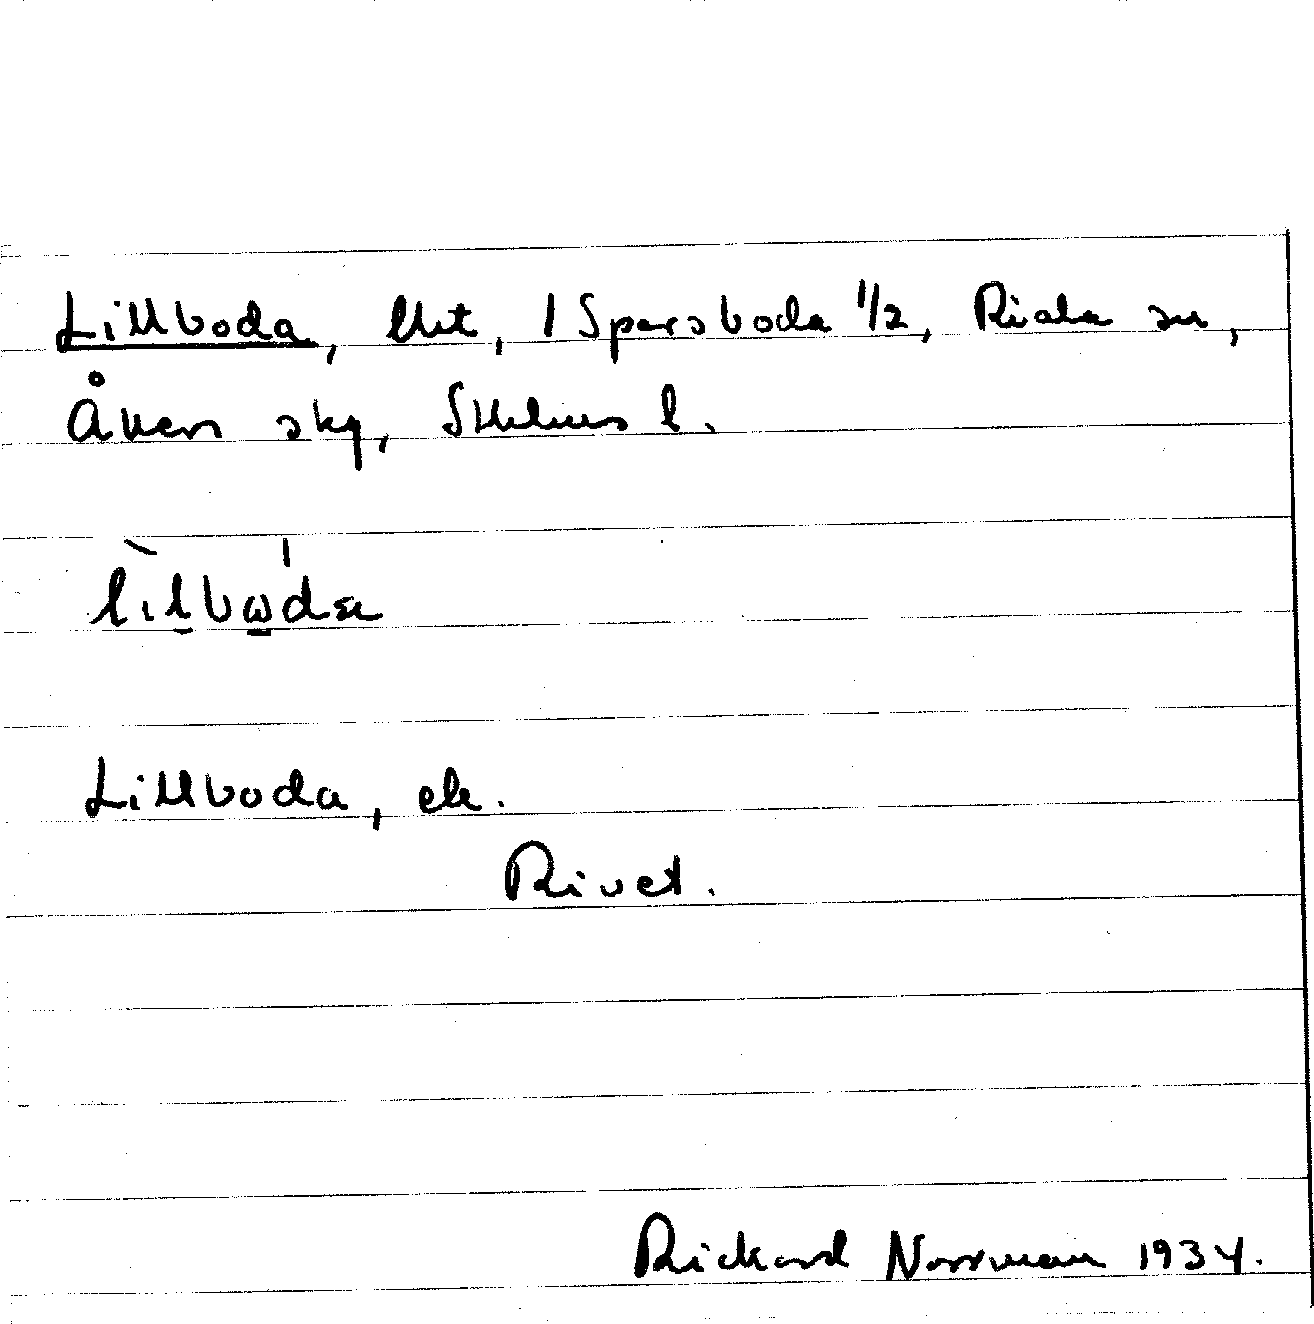 Lillboda, lht, 1 Sparsboda 1/2, Riala sn,
Åkers skg, Sthlms l.
lìlbώ̱da
Lillboda, ek.
Rivet.
Rickard Norrman 1934.